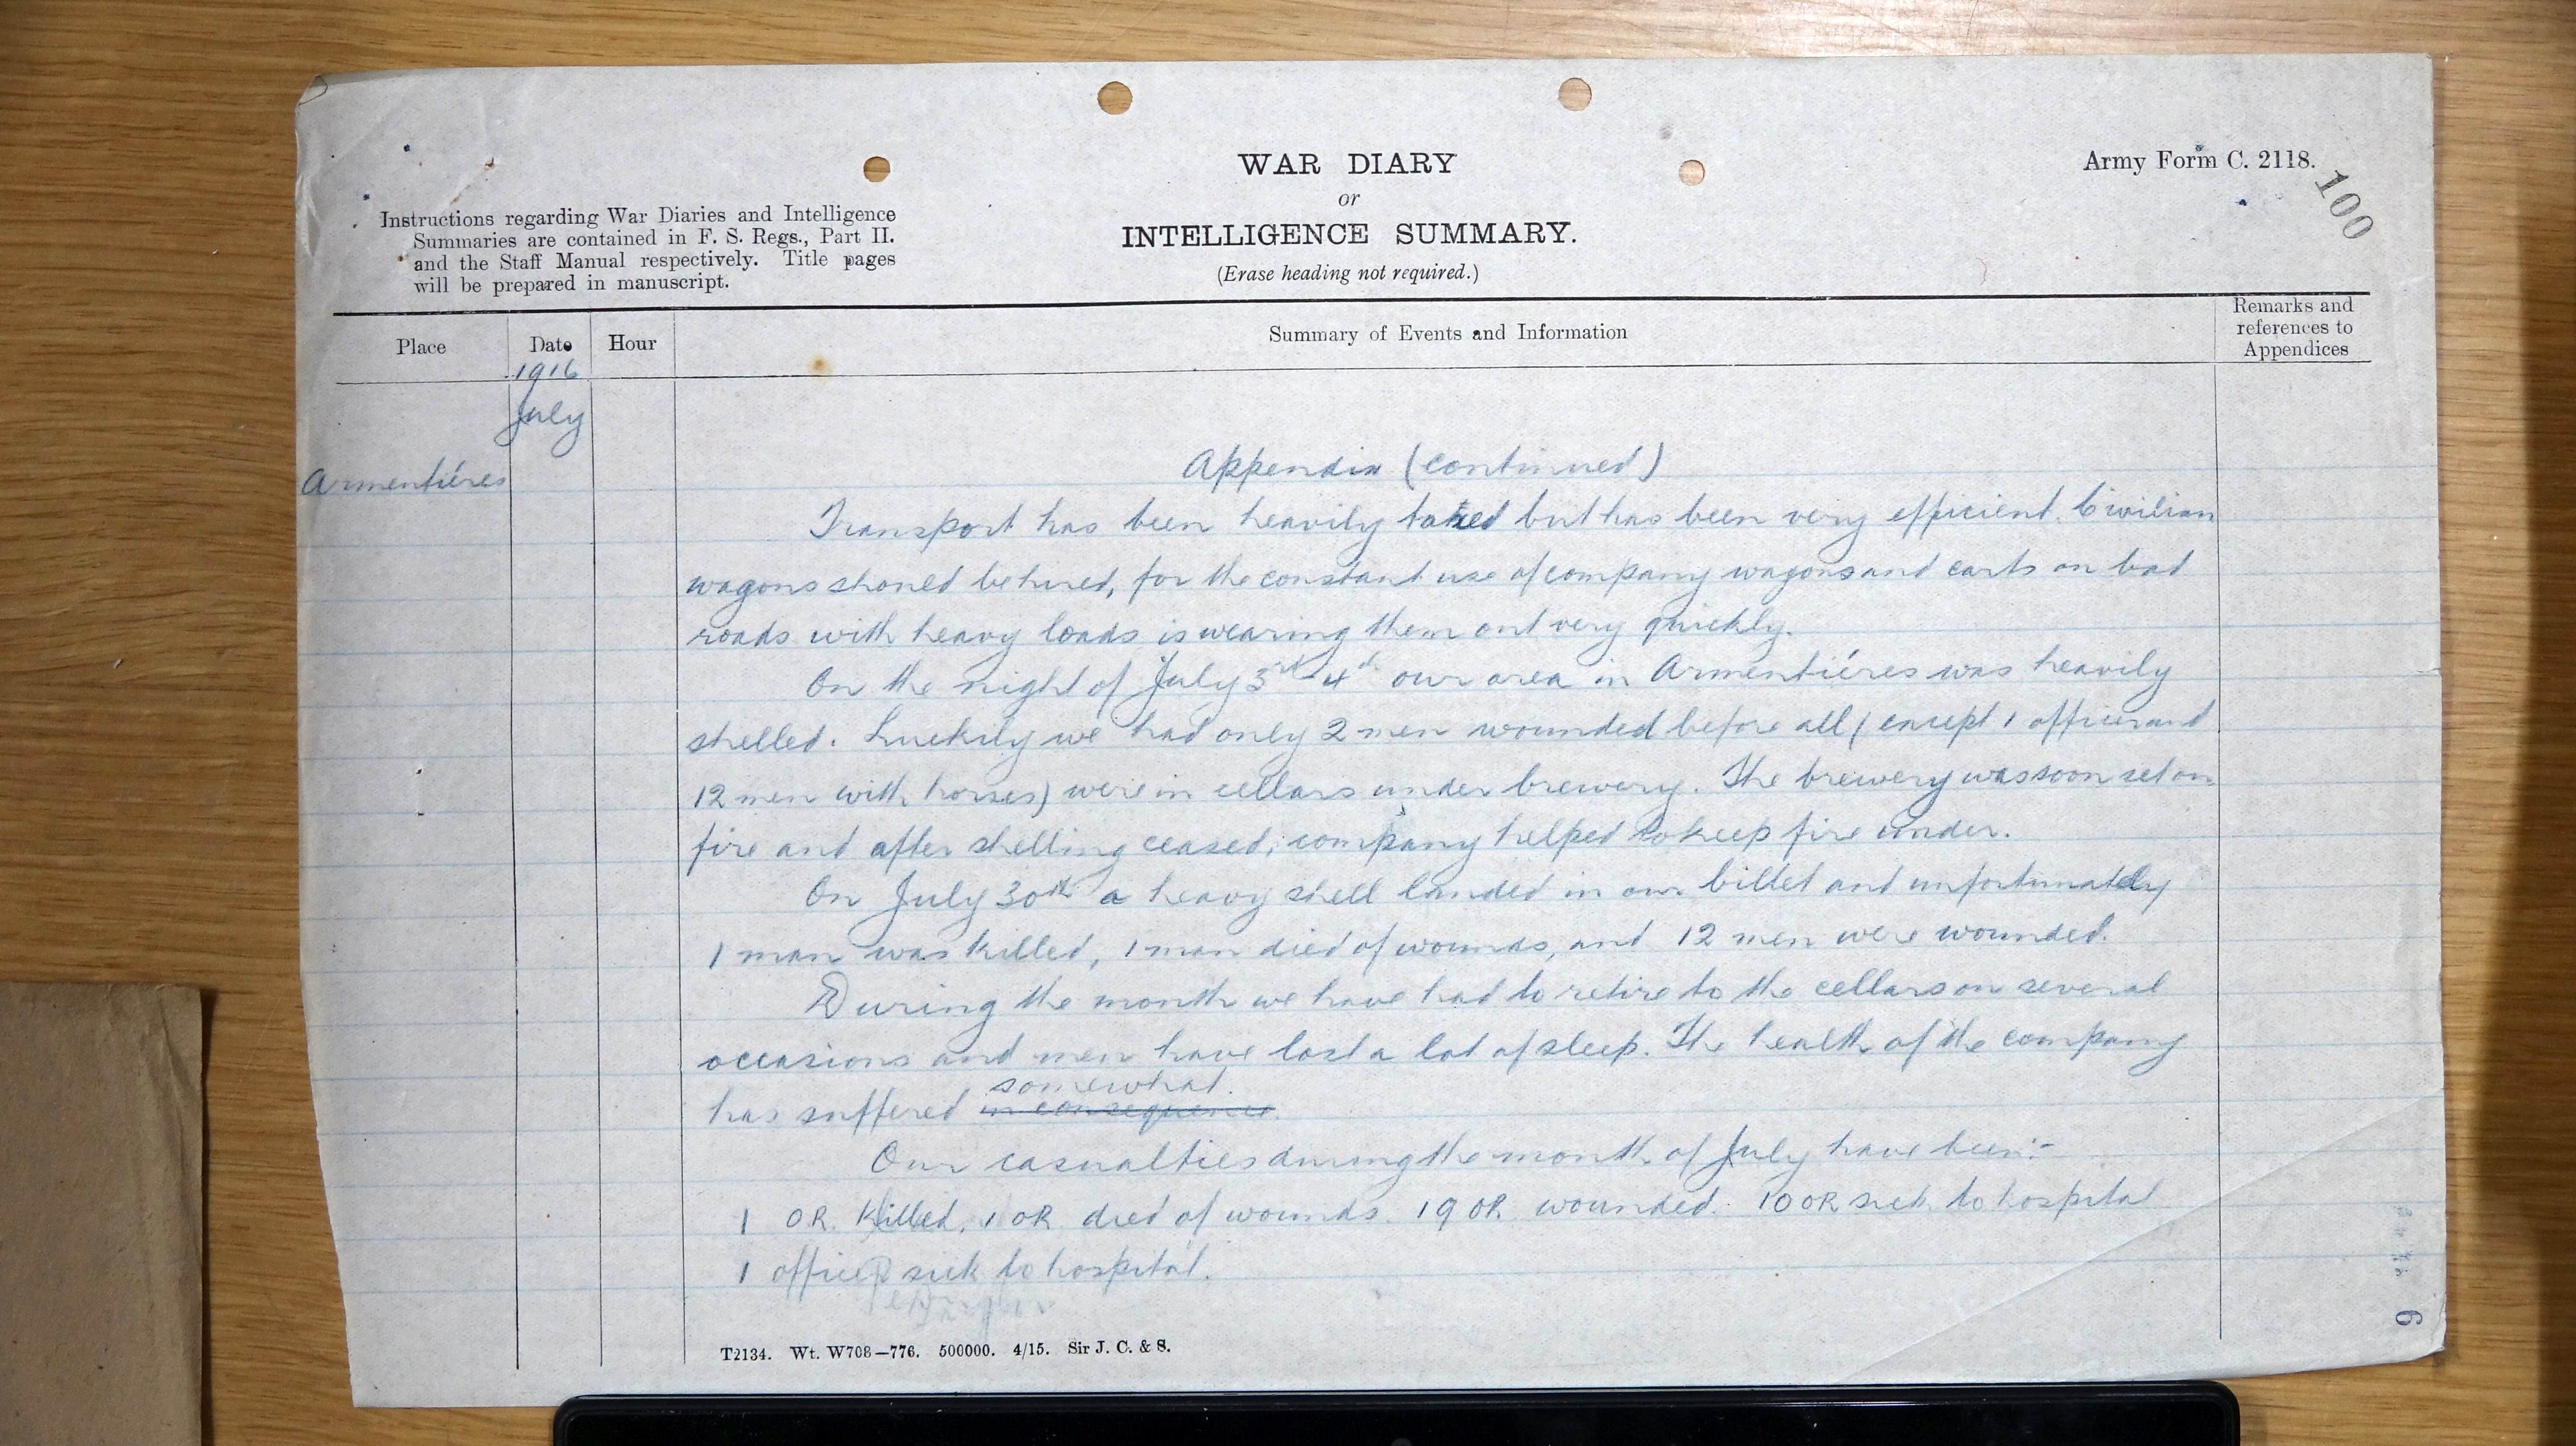 WAR DIARY
or
INTELLIGENCE SUMMARY.
(Erase heading not required.)
Army Form C. 2118.
100
Instructions regarding War Diaries and Intelligence
Summaries are contained in F. S. Regs., Part II.
and the Staff Manual respectively. Title pages
will be prepared in manuscript.
Place
Date
Hour
Summary of Events and Information
Remarks and
references to
Appendices
1916
July
Armentiéres
Appendix (continued)
Transport has been heavily taxed but has been very efficient. Civilian
wagons should be hired, for the constant use of company wagons and carts on bad
roads with heavy loads is wearing them out very quickly.
On the night of July 3rd-4th our area in Armentiéres was heavily
shelled. Luckily we had only 2 men wounded before all (except 1 officer and
12 men with horses) were in cellars under brewery. The brewery was soon set on
fire and after shelling ceased, company helped to keep fire under.
On July 30th a heavy shell landed in our billet and unfortunately
1 man was killed, 1 man died of wounds, and 12 men were wounded.
During the month we have had to retire to the cellars on several
occasions and men have lost a lot of sleep. The health of the company
somewhat.
has suffered in consequence.
Our casualties during the month of July have been:-
1 OR. Killed, 1 OR died of wounds. 19 OR wounded. 10 OR sick to hospital
1 officer sick to hospital.
T2134. Wt. W708—776. 500000. 4/15. Sir J. C. & S.
6